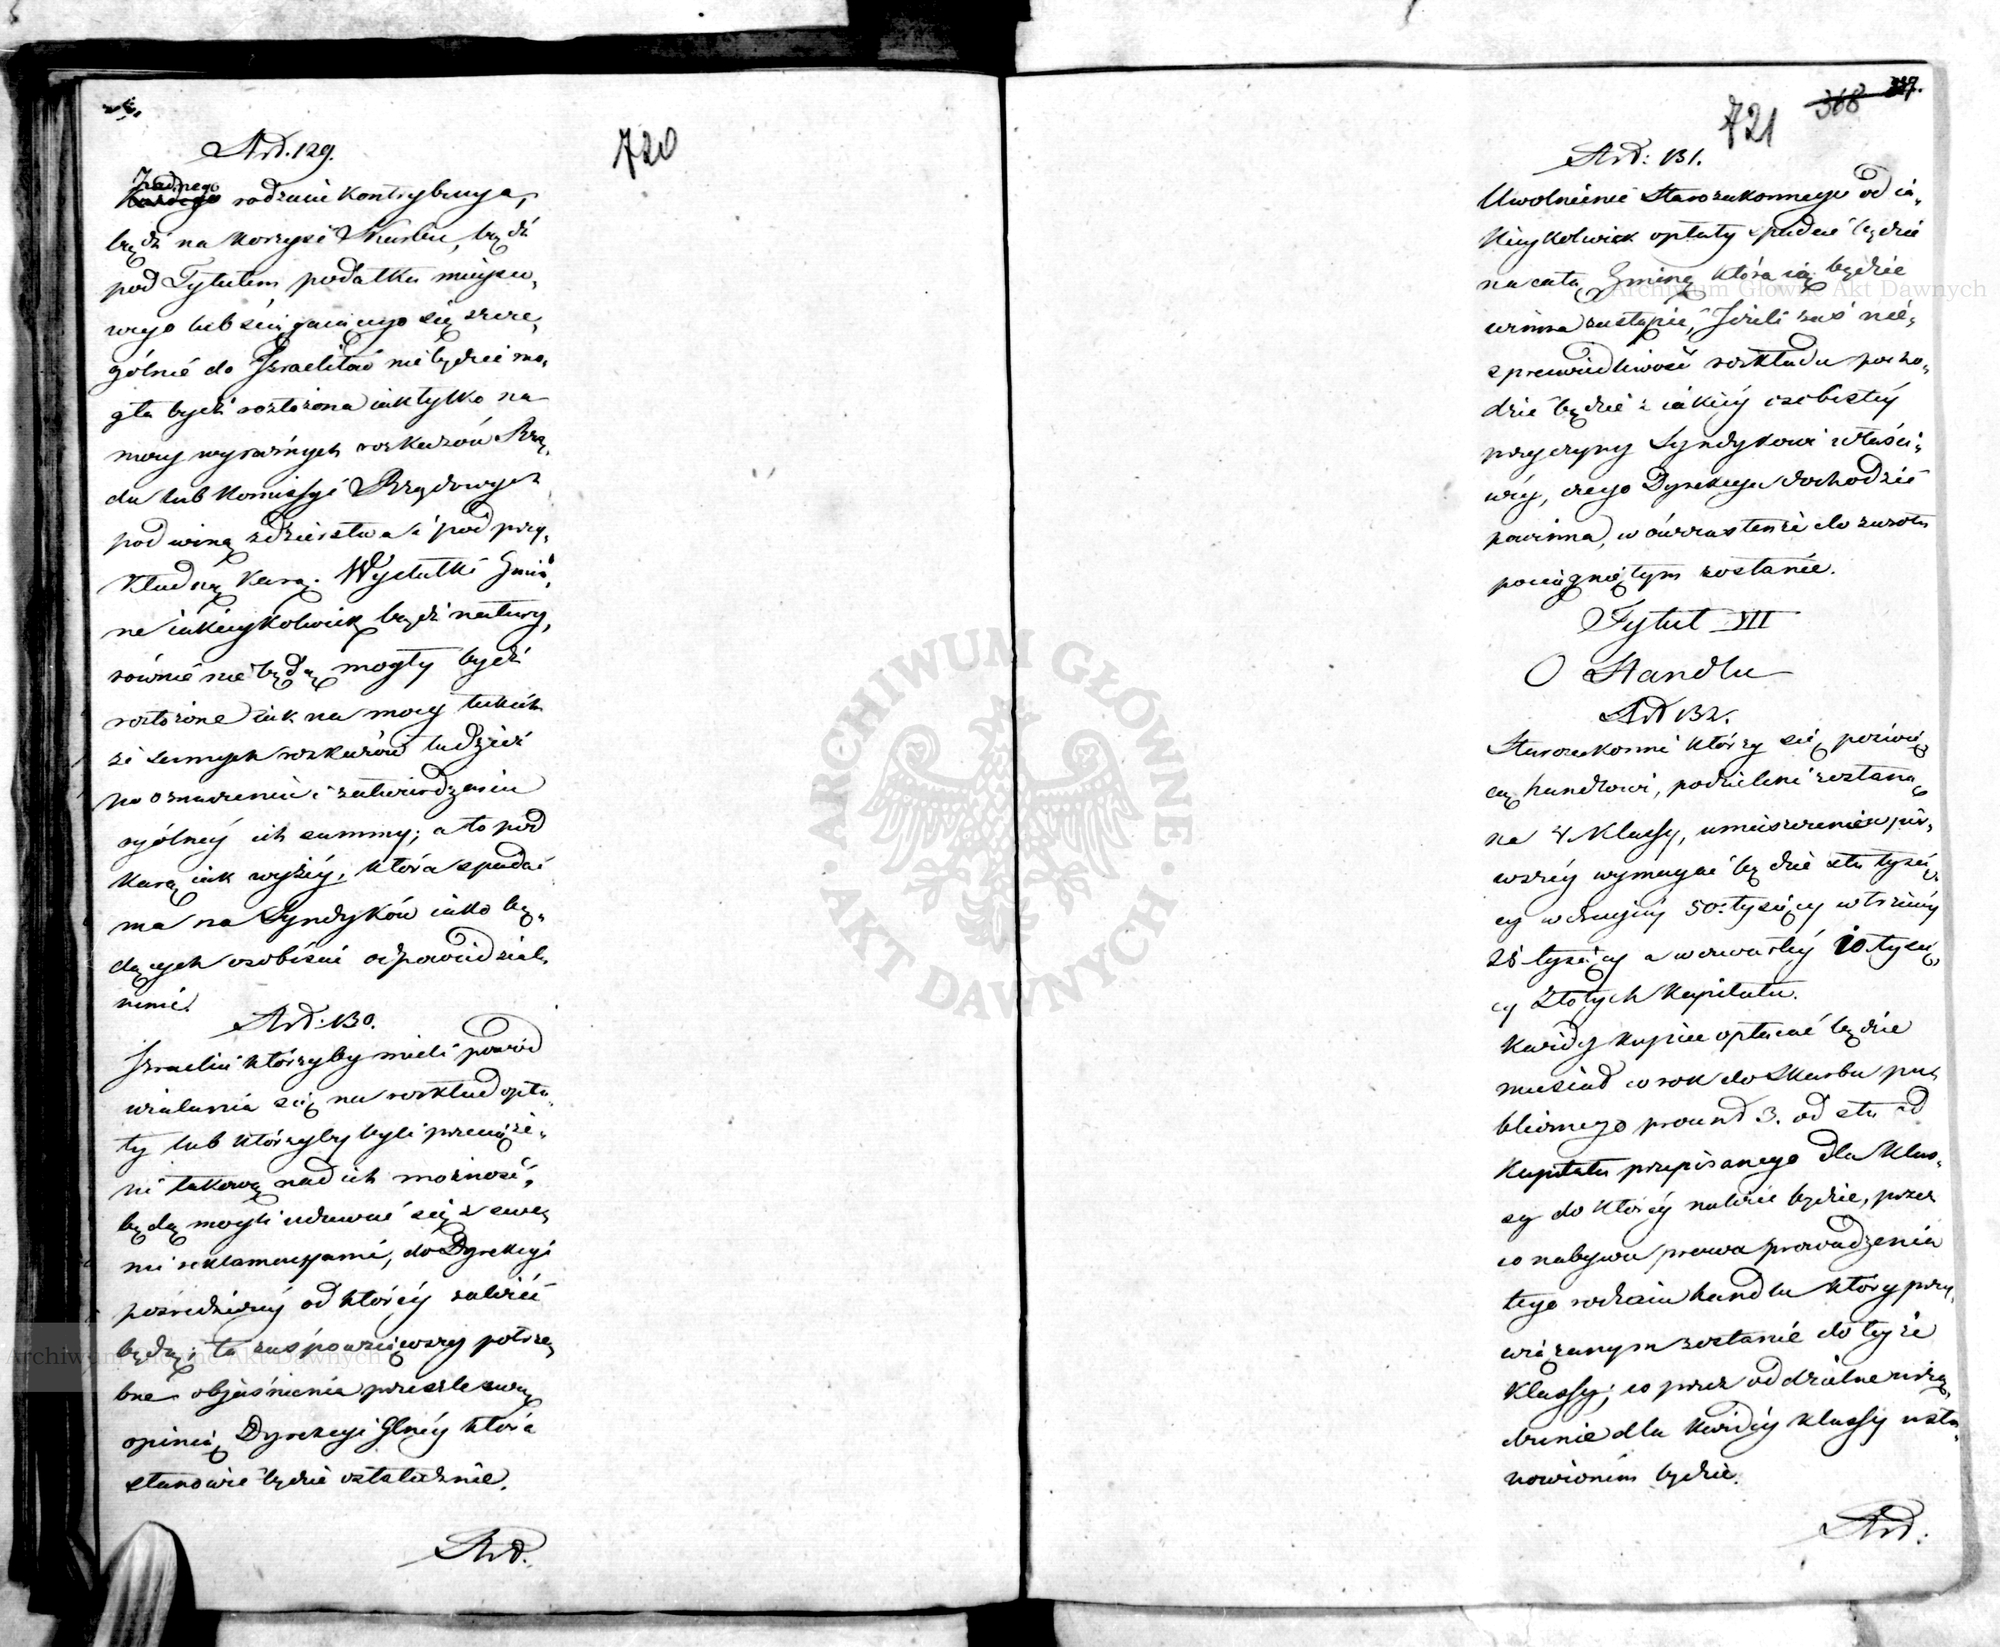 720
Art. 129.
Żadnego
Każdego rodzaiu kontrybucya,
bądź na korzyść Skarbu, bądź
pod Tytułem podatku mieysco,
wego lub ściągaiącego się szcze,
gólnie do Izraelitów nie będzie mo,
gła bydź rozłożona iak tylko na
mocy wyraźnych rozkazów Rzą,
du lub Kommissyi Rządowych
pod winą zdzierstwa i pod przy,
kładną karą. Wydatki Gmin,
ne iakieykolwiek bądź natury,
równie nie będą mogły bydź
rozłożone iak na mocy takich
że samych rozkazów tudzież
na oznaczeniu i zatwierdzeniu
ogólney ich summy; a to pod
karą iak wyżey, która spadać
ma na Syndyków iako bę,
dących osobiście odpowiedzial,
nemi.
Art: 130.
Izraelici którzyby mieli powód
użalania się na rozkład opła,
ty lub którzyby byli przeciąże,
ni takową nad ich możność,
będą mogli udawać się z swe,
mi reklamacyami, do Dyrekcyi
pośredniey od którey zależeć
będą; ta zaś powziąwszy potrze,
bne obiaśnienia prześle swą
opinią Dyrekcyi Głney która
stanowić będzie ostatecznie.
Art.
721
368
Art: 131.
Uwolnienie Starozakonnego od ia,
kieykolwiek opłaty spadać będzie
na całą Gminę która ią będzie
winna zastąpić, Jeżeli zaś nie,
sprawiedliwość rozkładu pocho,
dzić będzie z iakiey osobistey
przyczyny Syndykowi właści,
wey, czego Dyrekcya dochodzić
powinna, w ówczas tenże do zwrotu
pociągniętym zostanie.
Tytuł VII
O Handlu
Art 132.
Starozakonni którzy się poświę,
cą handlowi, podzieleni zostaną
na 4 Klassy, umieszczenie w pier,
wszey wymagać będzie stu tysię,
cy w drugiey 50. tysięcy w trzeciey
25 tysięcy a w czwartey 10 tysię,
cy Złotych kapitału.
Każdy kupiec opłacać będzie
musiał co rok do Skarbu pu,
blicznego procent 3. od sta od
kapitału przepisanego dla Klas,
sy do którey należeć będzie, przez
co nabywa prawa prowadzenia
tego rodzaiu handlu który przy,
wiązanym zostanie do teyże
Klassy; co przez oddzielne urzą,
dzenie dla każdey klassy usta,
nowionem będzie.
Art:
ARCHIWUM GŁÓWNE AKT DAWNYCH
Archiwum Główne Akt Dawnych
Archiwum Główne Akt Dawnych